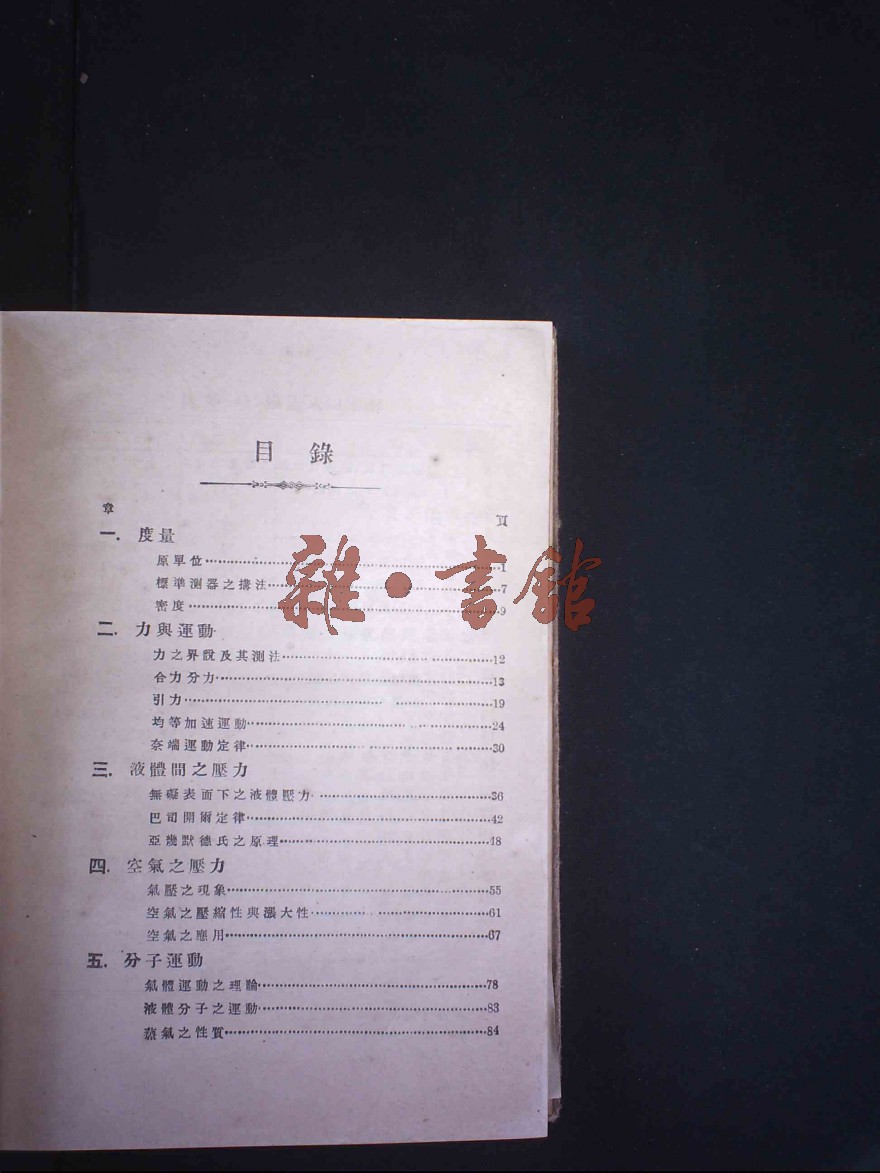 目錄
章 頁
一. 度量
原單位 1
標準測器之搆法 7
密度 9
雜·書館
二. 力與運動
力之界說及其測法 12
合力分力 13
引力 19
均等加速運動 24
奈端運動定律 30
三. 液體間之壓力
無礙表面下之液體壓力 36
巴司開爾定律 42
亞幾默德氏之原理 48
四. 空氣之壓力
氣壓之現象 55
空氣之壓縮性與漲大性 61
空氣之應用 67
五. 分子運動
氣體運動之理論 78
液體分子之運動 83
蒸氣之性質 84